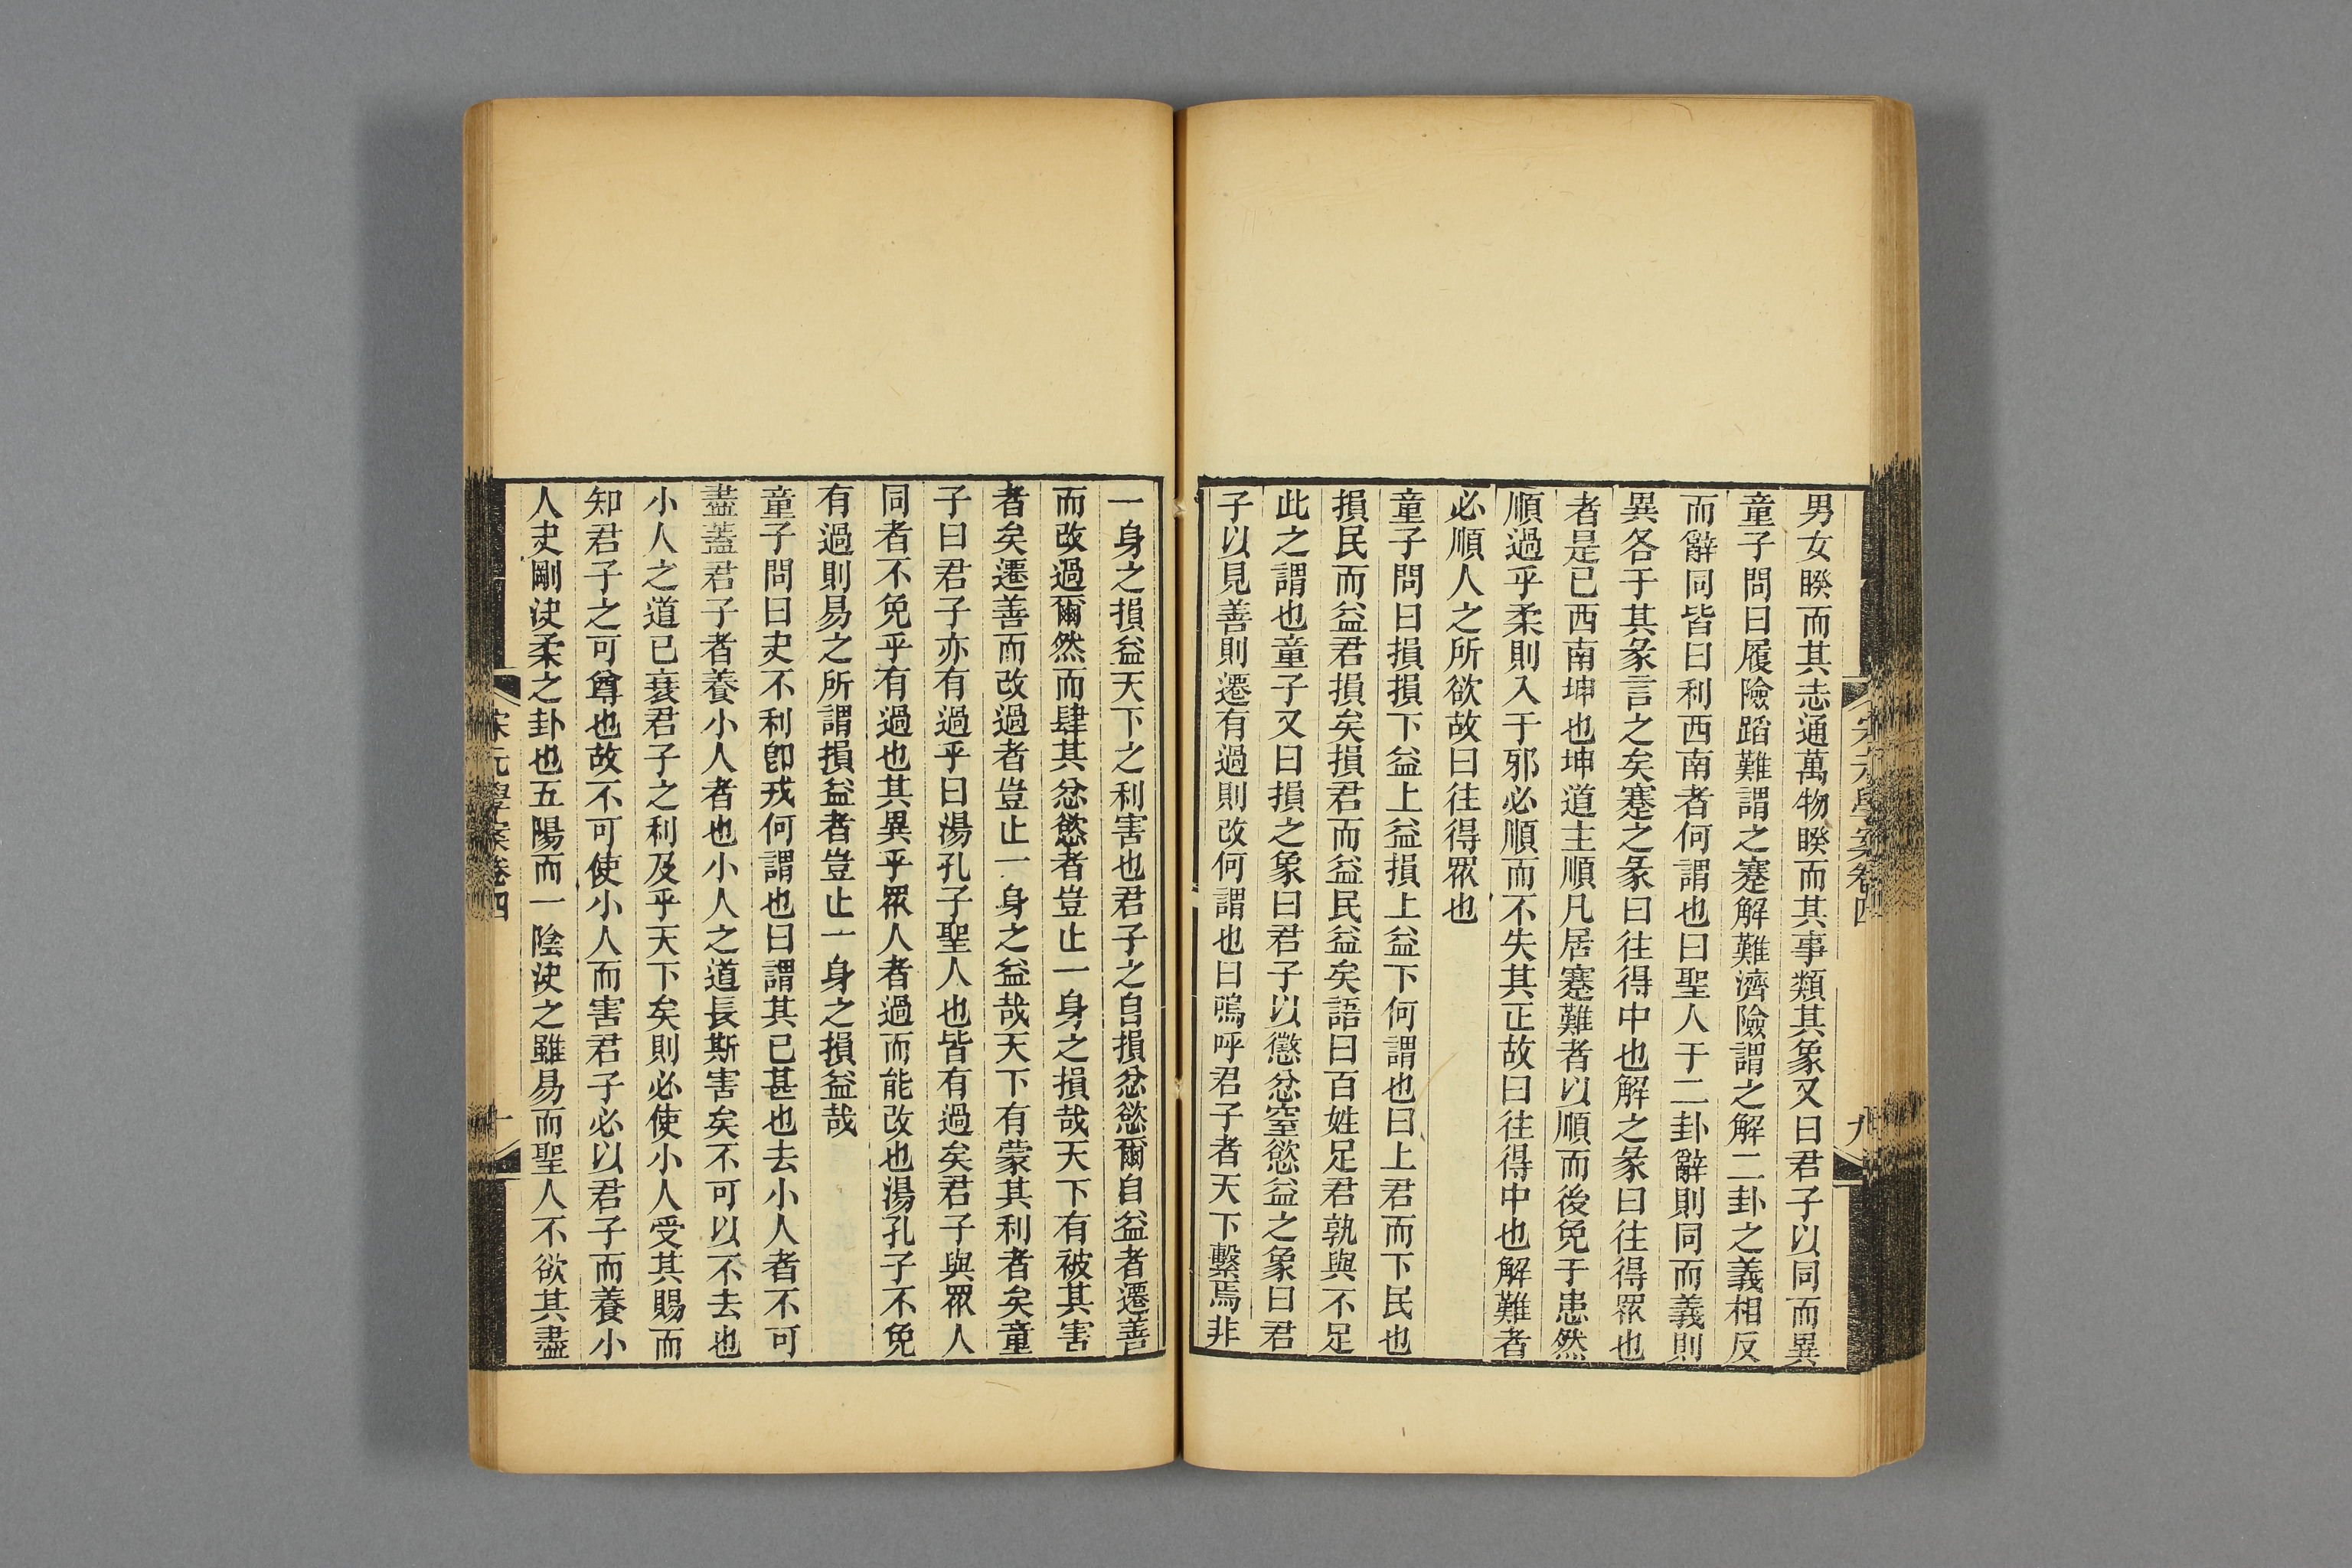 宋元學案卷四
九
男女睽而其志通萬物睽而其事類其象又曰君子以同而異
童子問曰履險蹈難謂之蹇解難濟險謂之解二卦之義相反
而辭同皆曰利西南者何謂也曰聖人于二卦辭則同而義則
異各于其彖言之矣蹇之彖曰往得中也解之彖曰往得眾也
者是已西南坤也坤道主順凡居蹇難者以順而後免于患然
順過乎柔則入于邪必順而不失其正故曰往得中也解難者
必順人之所欲故曰往得眾也
童子問曰損損下益上益損上益下何謂也曰上君而下民也
損民而益君損矣損君而益民益矣語曰百姓足君孰與不足
此之謂也童子又曰損之象曰君子以懲忿窒慾益之象曰君
子以見善則遷有過則改何謂也曰嗚呼君子者天下繫焉非
一身之損益天下之利害也君子之自損忿慾爾自益者遷善
而改過爾然而肆其忿慾者豈止一身之損哉天下有被其害
者矣遷善而改過者豈止一身之益哉天下有蒙其利者矣童
子曰君子亦有過乎曰湯孔子聖人也皆有過矣君子與眾人
同者不免乎有過也其異乎眾人者過而能改也湯孔子不免
有過則易之所謂損益者豈止一身之損益哉
童子問曰夬不利卽戎何謂也曰謂其已甚也去小人者不可
盡蓋君子者養小人者也小人之道長斯害矣不可以不去也
小人之道已衰君子之利及乎天下矣則必使小人受其賜而
知君子之可尊也故不可使小人而害君子必以君子而養小
人夬剛決柔之卦也五陽而一陰決之雖易而聖人不欲其盡
宋元學案卷四
十